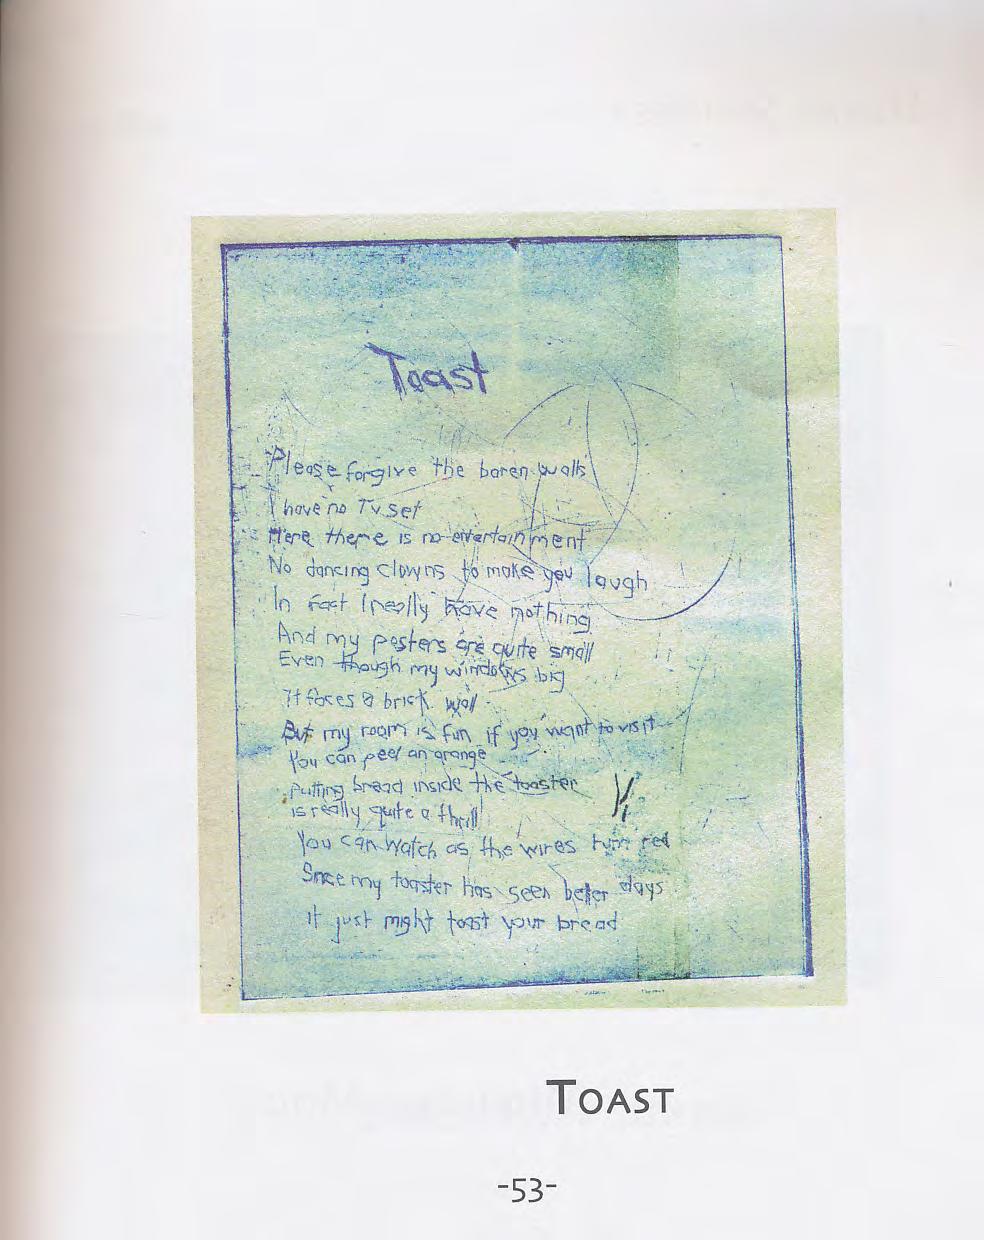 Toast
Please forgive the baren walls
I have no Tv set
Here there is no entertainment
No dancing clowns to make you laugh
In fact I really have nothing
And my posters are quite small
Even though my windows big
It faces a brick wall
But my room is fun if you want to visit
You can peel an orange
putting bread inside the toaster
is really quite a thrill
You can watch as the wires turn red
Since my toaster has seen better days
It just might toast your bread
TOAST
-53-